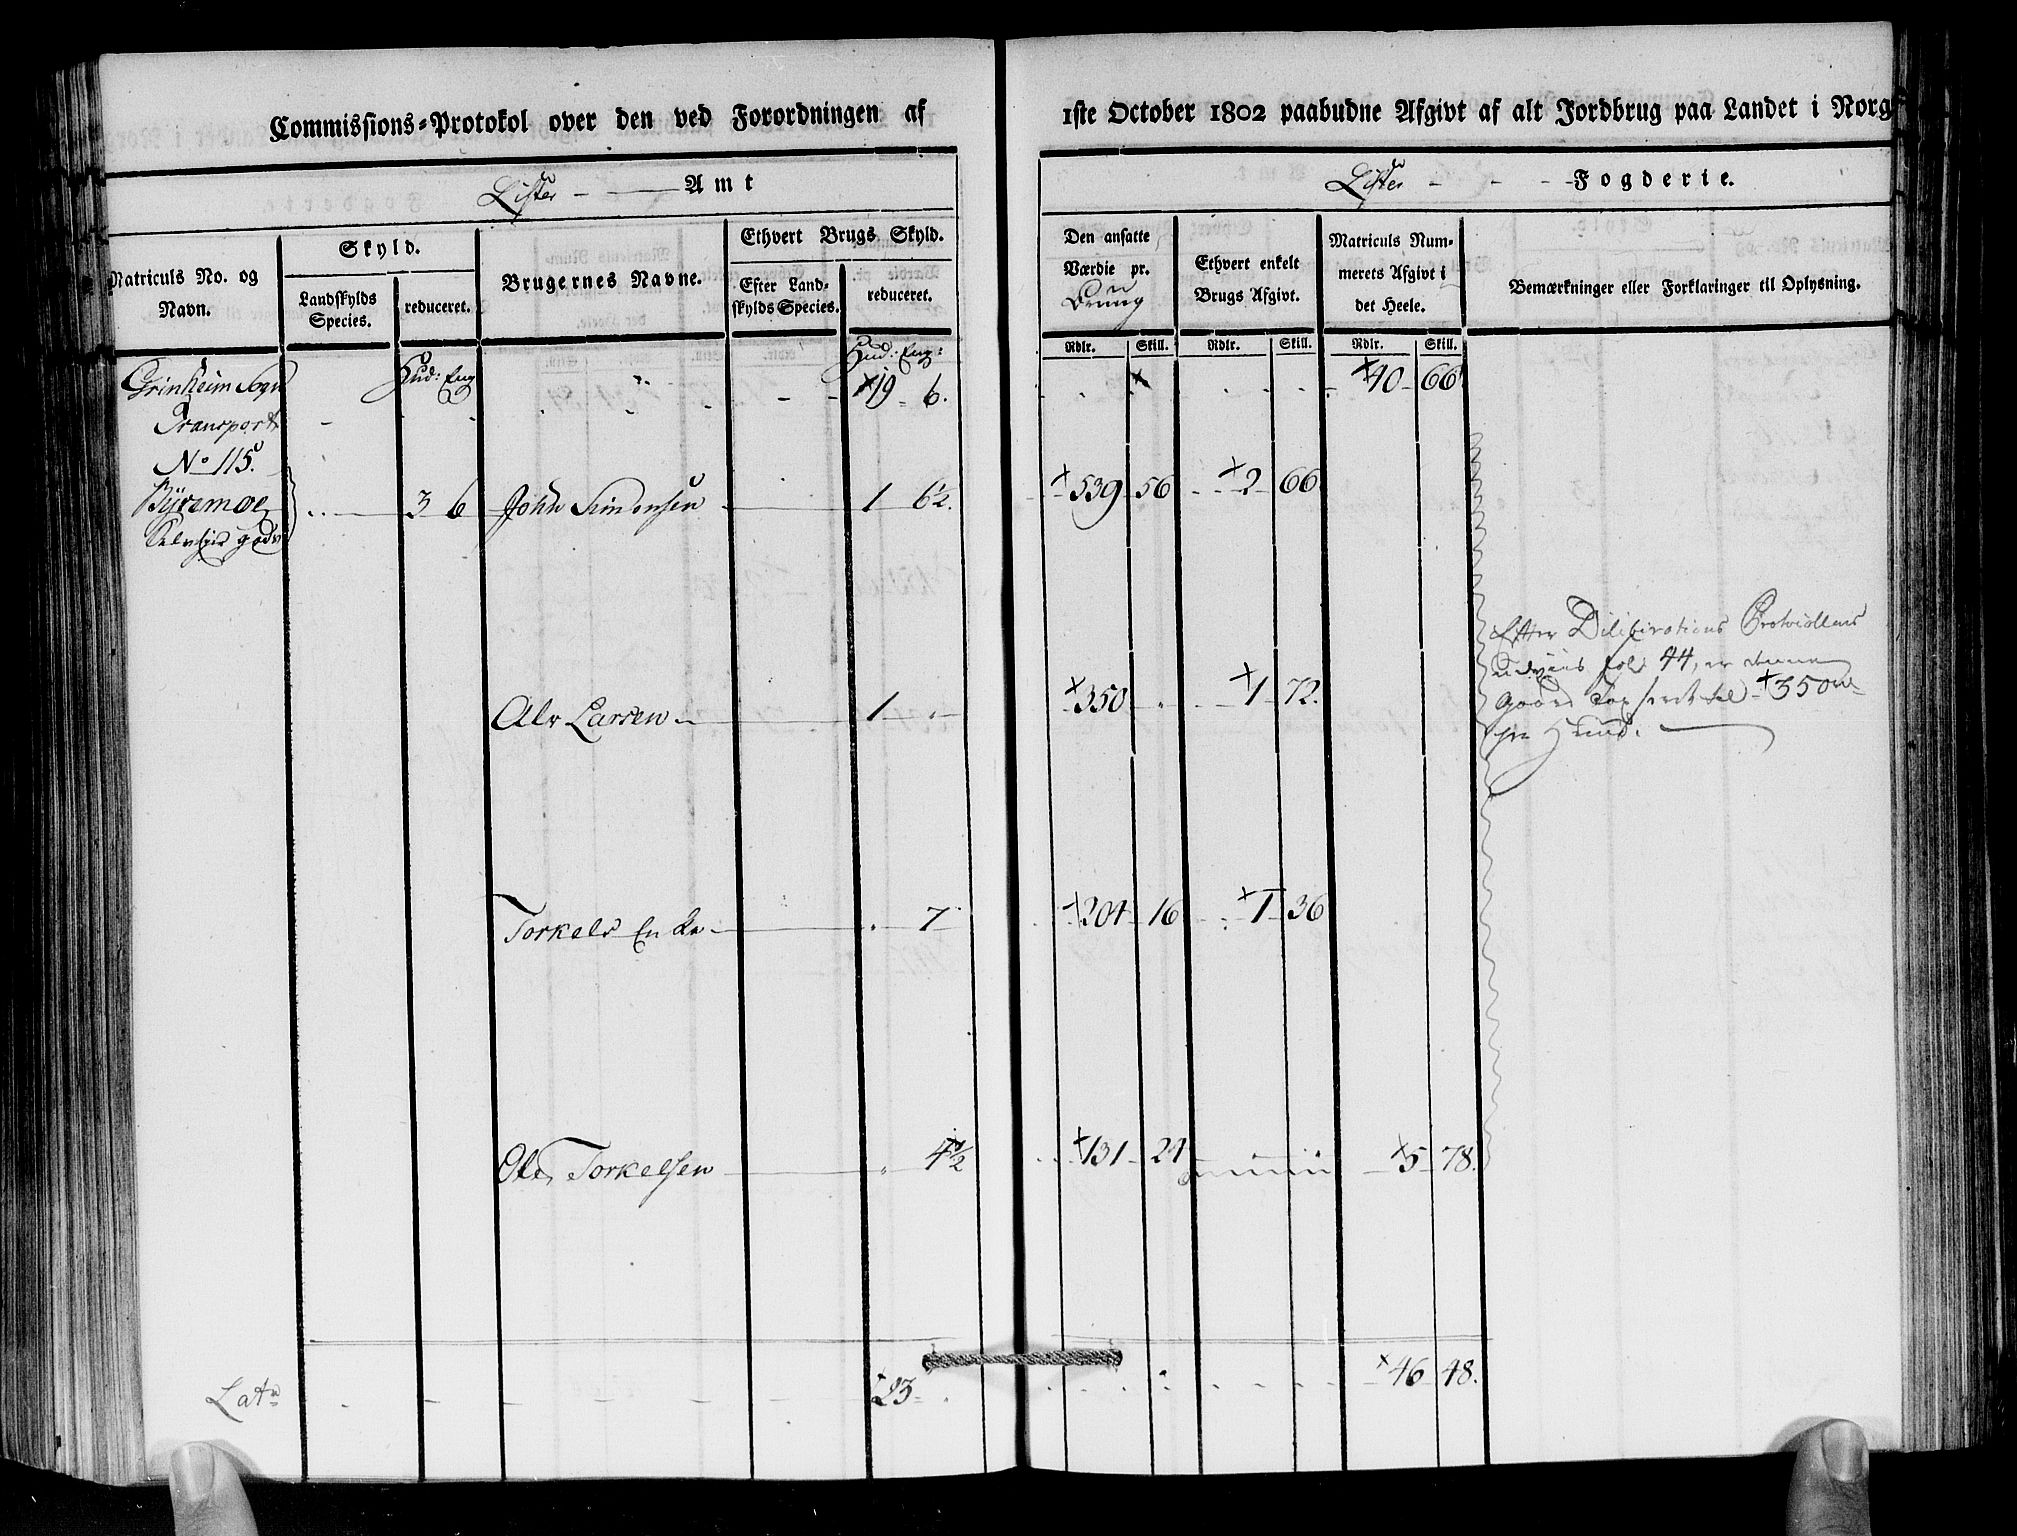 Commissions-Protokol over den ved Forordningen af 1ste October 1802 paabudne Afgivt af alt Jordbrug paa Landet i Norg
Lister - Amt
Lister - - - Fogderie.
Matriculs No. og Navn.
Skyld.
Landskylds Species.
reduceret.
Brugernes Navne.
Ethvert Brugs Skyld.
Efter Landskylds Species.
reduceret.
Den ansatte Værdie pr.
Ethvert enkelt Brugs Afgivt.
Matriculs Nummerets Afgivt i det Heele.
Bemærkninger eller Forklaringer til Oplysning.
Rdlr. Skill. Rdlr. Skill. Rdlr. Skill.
Hud: Eng Hud: Eng:
Grinheim Sogn 19 - 6. 40 - 66
Transport
No 115.
Byremoe 3 6 John Simonsen 1 6½. 539 56 2 66
Alv Larsen 1 350 1 72.
Efter Deliberations Protocollens
Udviis fol: 44, er denne
Gaard taxseret til 350 rd
pr Hund.
Torkels Enke 7 204 16 1 36
Ole Torkelsen 4½ 131 24 5 78.
Lat 23 46 48.